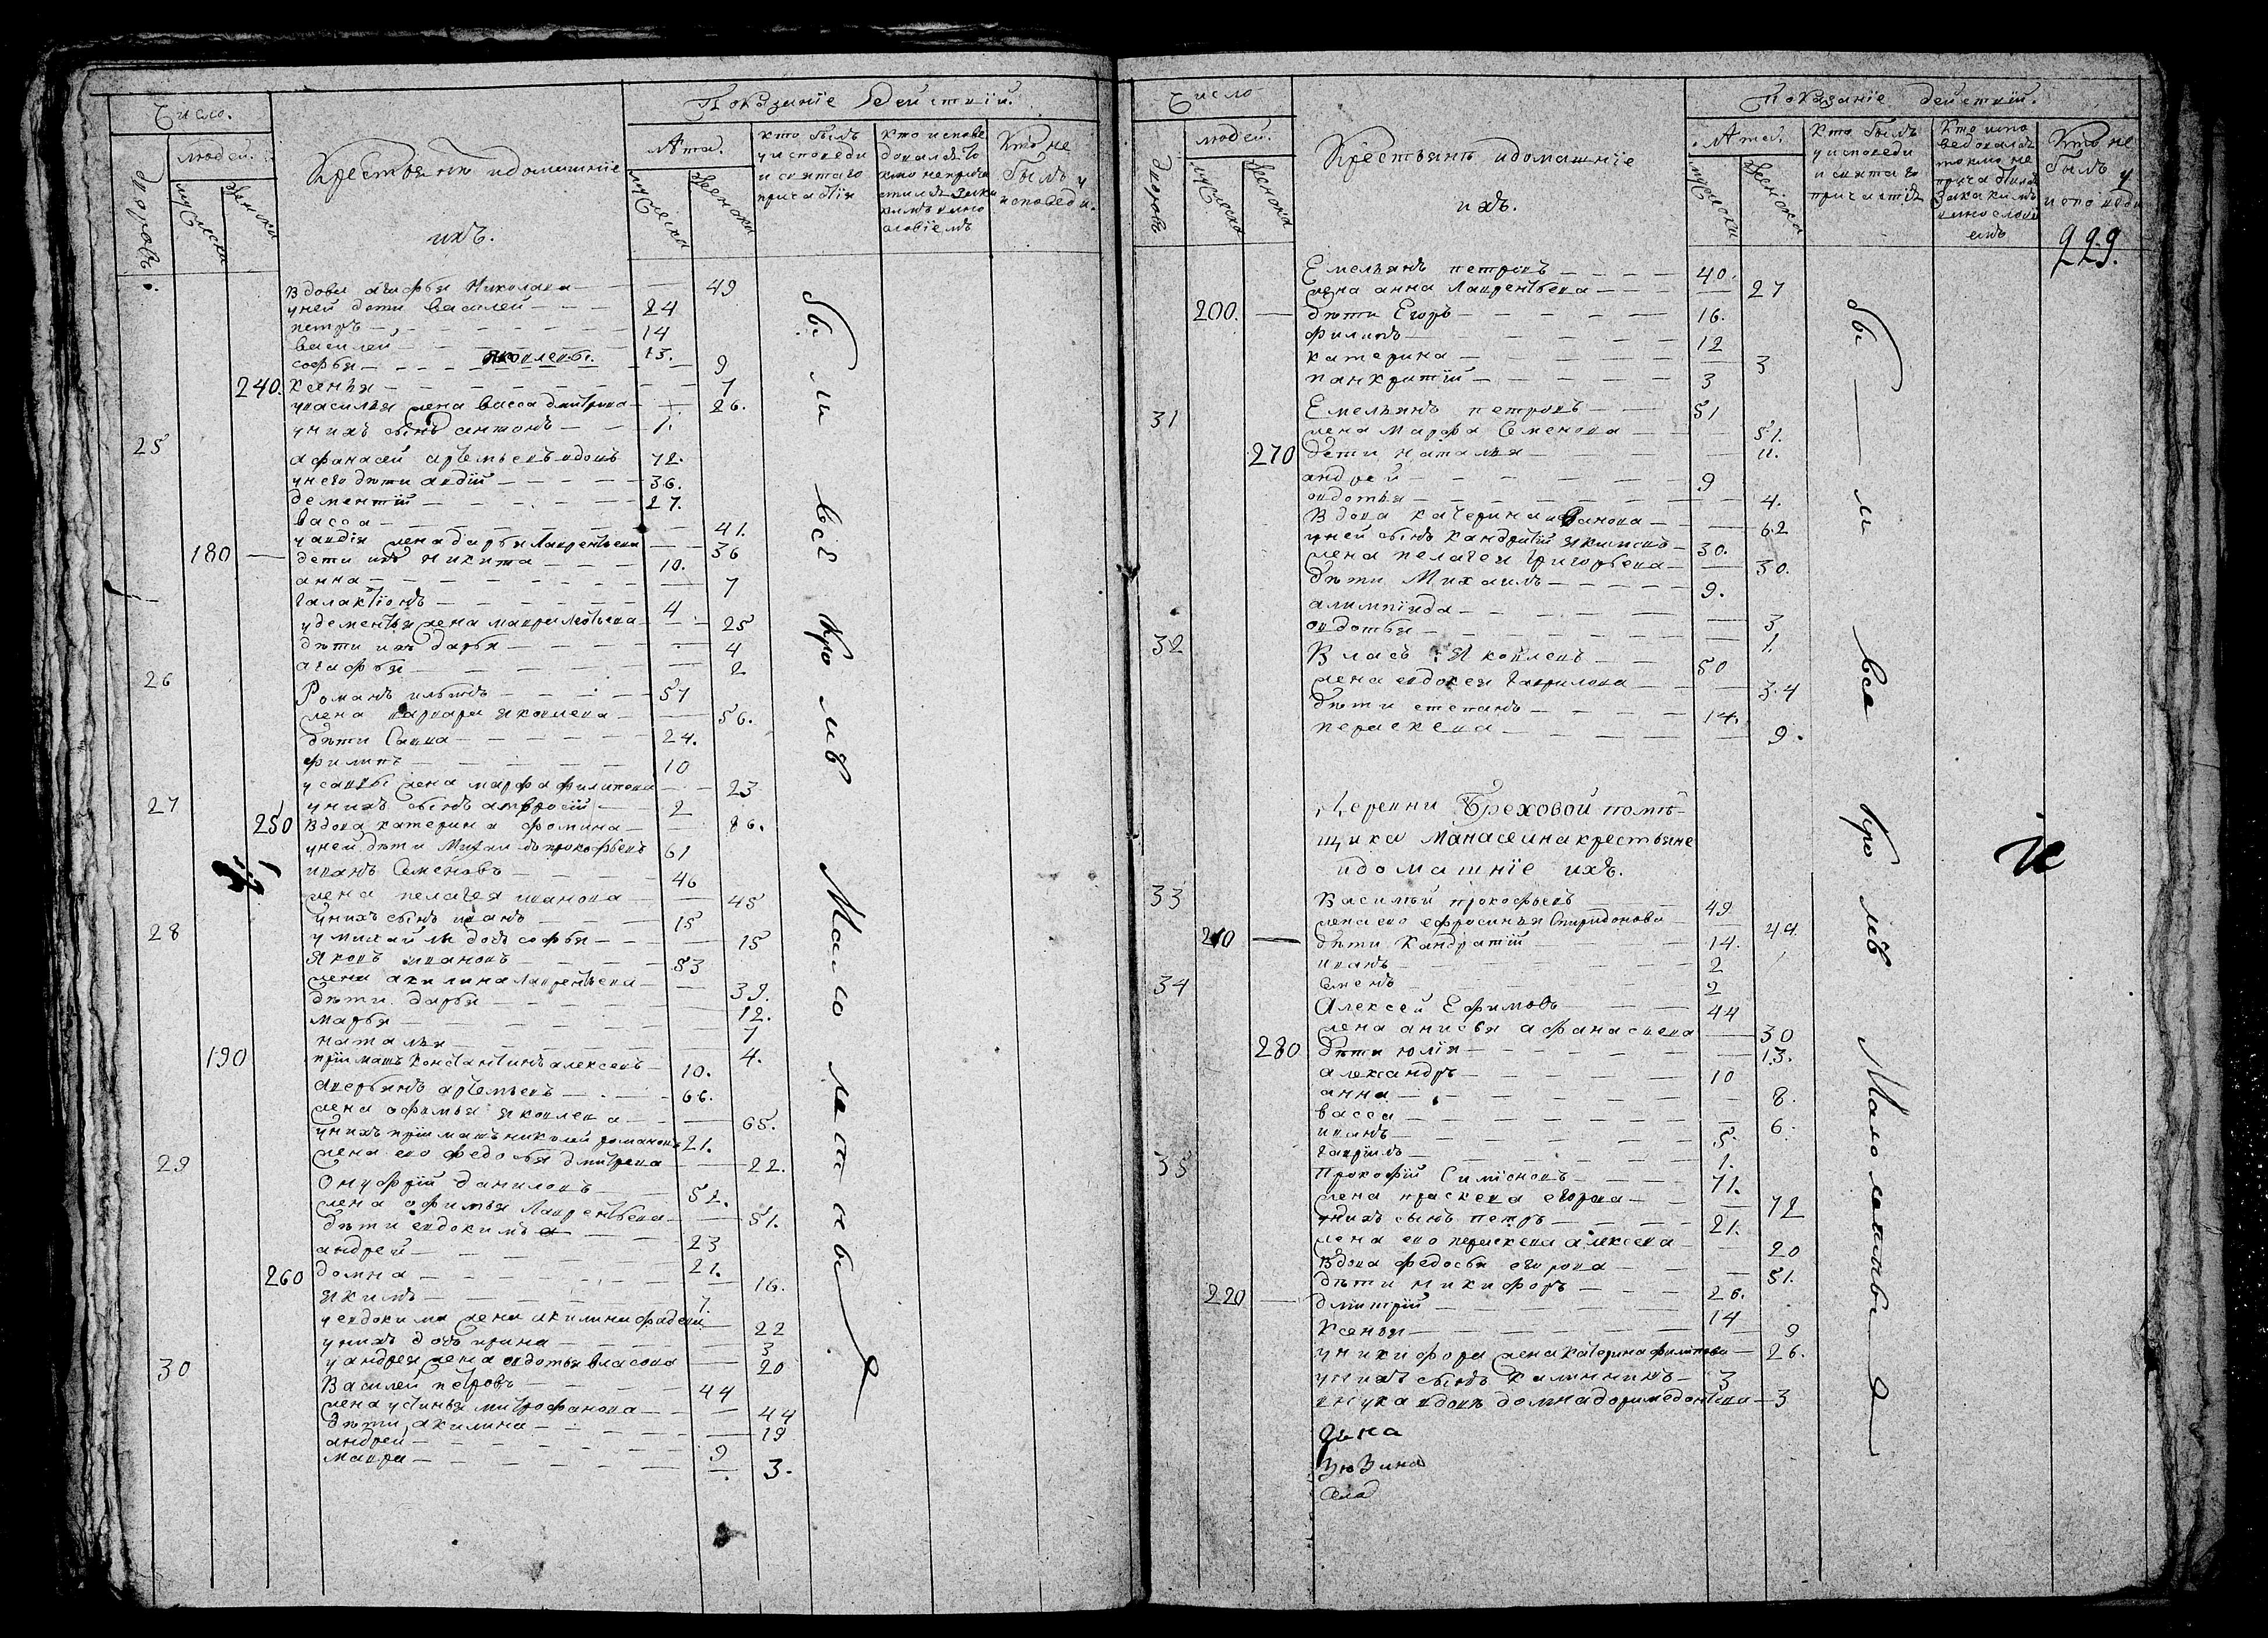 Число.
Показание действии.
людей.
Крестьянъ идомашние
ихъ.
Лѣта.
кто былъ
уисповеди
и святаго
причастия
Кто не
былъ у
исповеди.
дворовъ
мужеска
женска
мужеска
женска
Вдова агафья Николаева — 49
уней дети Василей — 24
петръ — 14
василей — 13.
софья — яковлевы. 9
240. Ксенья — 7
увасилья жена васса дмитрева — 26.
унихъ сынъ антонъ — 1.
25
афанасей артемьевъ вдовъ 72.
унего дѣти авдий — 36.
дементий — 27.
васса — 41.
уавдия жена дарья Лаврентьева — 36
180 — дети ихъ никита — 10.
анна — 7
Галактионъ — 4
удементья жена мавра леотьева — 25
дѣти ихъ дарья — 4
агафья — 2
26
Романъ ильинъ — 57
жена варвара яковлева — 56.
дѣти Савва — 24.
филипъ — 10
усаввы жена марфа филипова — 23
27
унихъ сынъ амвросий — 2
250 Вдова катерина фомина — 86.
уней дѣти Михаила прокофьевъ 61
иванъ Семеновъ — 46
жена пелагея иванова — 45
унихъ сынъ иванъ — 15
28
у михайлы дочь софья — 15
Яковъ ивановъ — 53
жена акилина Лаврентьева — 39.
дѣти дарья — 12.
марья — 7
наталья — 4.
190 приимашъ константинъ алексеевъ — 10.
аверьянъ артемьевъ — 66.
жена офимья яковлева — 65.
унихъ приимашъ николай романовъ 21.
жена его федосья дмитрева — 22.
29
Онуфрий даниловъ — 52.
жена офимья Лаврентьева — 51.
дѣти евдокимъ — 23
андрей — 21.
260 домна — 16.
якимъ — 7.
уевдокима жена акилина фадеева — 22
унихъ дочь ирина — 3
уандрея жена авдотья власова — 20
30
Василей петровъ — 44
жена устинья митрофанова — 44
дѣти акилина — 19
андрей — 9
мавра — 3.
были все кромѣ Малолетны
Число
Показание действии.
людей.
Крестьянъ идомашние
ихъ.
Лѣта.
Кто былъ
уисповеди
и святаго
причастия
Кто не
былъ у
исповеди
дворовъ
мужеска
женска
мужеска
женска
229.
Емельянъ петровъ — 40.
жена анна Лаврентьева — 27
200. — дѣти Егоръ — 16.
филипъ — 12
катерина — 3
панкратий — 3
31
Емельянъ петровъ — 51
жена Марфа Семенова — 51.
270 дети наталья — 11.
андрей — 9
овдотья — 4.
Вдова катерина иванова — 62
уней сынъ кандратий якимовъ — 30.
жена пелагея григорьева — 30.
дѣти Михаилъ — 9.
алимпиада — 3
овдотья — 1.
32
Власъ Яковлевъ — 50
жена евдокея Гаврилова — 34
дѣти степанъ — 14.
параскева — 9.
Деревни Бреховой помѣ-
щика манасеина крестьяне
идомашние ихъ.
33
Василей прокофьевъ — 49
жена его ефросинья Спиридонова — 44.
210 — дѣти Кандратий — 14.
иванъ — 2
Семенъ — 2
34
Алексей Ефимовъ — 44
жена анисья афанасьева — 30
280 дѣти юлия — 13.
александръ — 10
анна — 8.
васса — 6.
иванъ — 5.
гаврилъ — 1.
35
Прокофий Симионовъ — 71.
жена праскева егорова — 72
унихъ сынъ петръ — 21.
жена его параскева алексеева — 20
Вдова федосья егорова — 51.
дѣти никифоръ — 26.
220 — дмитрий — 14
Ксенья — 9
уникифора жена катерина филипова — 26.
унихъ сынъ калинникъ — 3
внука вдовъ домна доримедонтова — 3
были все кромѣ Малолетны